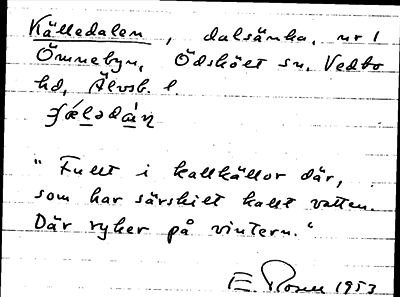 Källedalen, dalsänka, nr 1
Ömmebyn, Ödskölt sn, Vedbo
hd, Älvsb. l.
"Fullt i kallkällor där,
som har särskilt kallt vatten.
Där ryker på vintern."
E. 1953